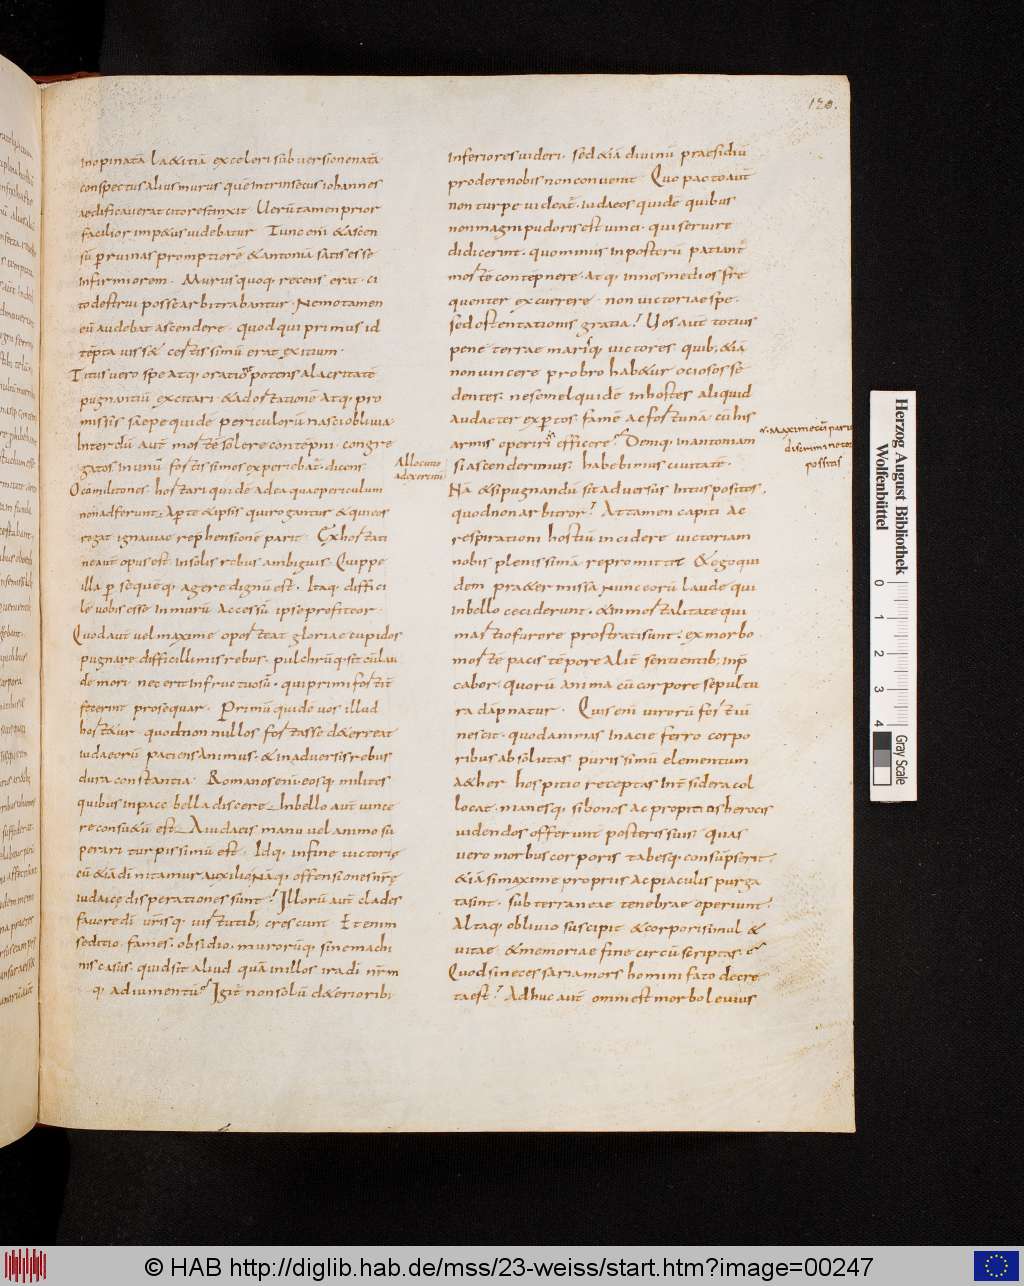 120.
inopinatā laetitiā exceleri subversione nata
conspectus alius murus quē intrinsecus iohannes
aedificaverat citorestinxit Verū tamen prior
facilior impetus videbatur Tunc eni & ascen
sū p ruinas promptiorē & antoniā satis esse
infirmiorem. Murus quoq, recens erat. ci
to destrui posse arbitrabantur. Nemo tamen
eū audebat ascendere. quod qui primus id
tēptavisset certissimū erat exitium.
Titus vero spe atq, oratione potens alacritatē
pugnantiū excitari & adhortatione atq, pro
missis saepe quidē periculorū nasci oblivia.
Interdū aut mortē solere contēpni. congre
gatos in unū fortissimos experiebat. dicens.
O cōmilitones. hortari quidē ad ea quae periculum
non adferunt. Aperte & ipsis qui rogantur & qui eos
rogat ignaviae rephensionē parit. Exhortati
ne aut opus est. in solis rebus ambiguis. Quippe
illa p se quēq, agere dignū est. Itaq, diffici
lē vobis esse in murū accessū ipse profiteor.
Quod aut vel maxime oporteat gloriae cupidos
pugnare difficillimis rebus. pulchrūq, sit cū lau
de mori. nec erit infructuosū. qui primi fortit
fecerint prosequar. Primū quidē vos illud
hortatur. quod non nullos fortasse deterreat
iudaeorū patiens animus. & in adversis rebus
dura constantia. Romanos enī eosq, milites
quibus in pace bella discere. In bello aut vince
re consuetū est. Aiudaeis manu vel animo su
perari turpissimū est. Idq, in fine victorie
cū etiā di nitamur auxilio Naq, offensiones nre
iudaice disperationes sunt? Illorū aut clades
favore di. vrisq, virtutib; crescunt Etenim
seditio. fames. obsidio. murorūq, sine machi
nis casus. quid sit aliud quā in illos ira di nrm
q, adiumentū? Igit non solū deterioribus
Allocutio
ad exercitū
inferiores videri. sed etiā divinū praesidiū
prodere nobis non convenit Quo pacto aut
non turpe videat. iudaeos quidē quibus
non magni pudoris est vinci. qui servire
didicerint. quominus in posterū patiant
mortē contēpnere. Atq, in nos medios fre
quenter excurrere. non victoriae spe.
sed ostentationis gratia? Vos aut totius
pene terrae marisq, victores quib; etiā
non vincere probro habetur ociosos se
dentes. ne semel quidē in hostes aliquid
audacter exptos famē ac fortunā cū his
armis operiri efficere? Deniq, in antoniam
si ascenderimus. habebimus civitatē.
Nā & si pugnandū sit adversus intus positos.
quod non arbitror? Attamen capiti ac
respirationi hostiū incidere victoriam
nobis plenissimā repromittit Et ego qui
dem praetermissa nunc eorū laude qui
in bello ceciderunt. & inmortalitate qui
martio furore prostrati sunt. ex morbo
mortē pacis tēpore aliter sentientib; inp
cabor. quorū anima cū corpore sepultu
ra dāpnatur. Quis enī virorū fortiū
nescit. quod animas in acie ferro corpo
ribus absolutas purissimū elementum
aether hospitio receptas int sidera col
locat. manesq, si bonos ac propitios heroes
videndos offerunt posteris suis. quas
vero morbus corporis tabesq, consūpserit.
etiā si maxime propriis ac piaculis purga
ta sint. subterraneae tenebrae operiunt.
Altaq, oblivio suscipit & corporis simul &
vitae. & memoriae fine circū scriptas.
Quod si necessaria mors homini fato decre
ta est? Adhuc aut omni est morbo levius
n. maxime cū parvo
discrimine tota
possitas
Herzog August Bibliothek
Wolfenbüttel
0 1 2 3 4
Gray Scale
© HAB http://diglib.hab.de/mss/23-weiss/start.htm?image=00247